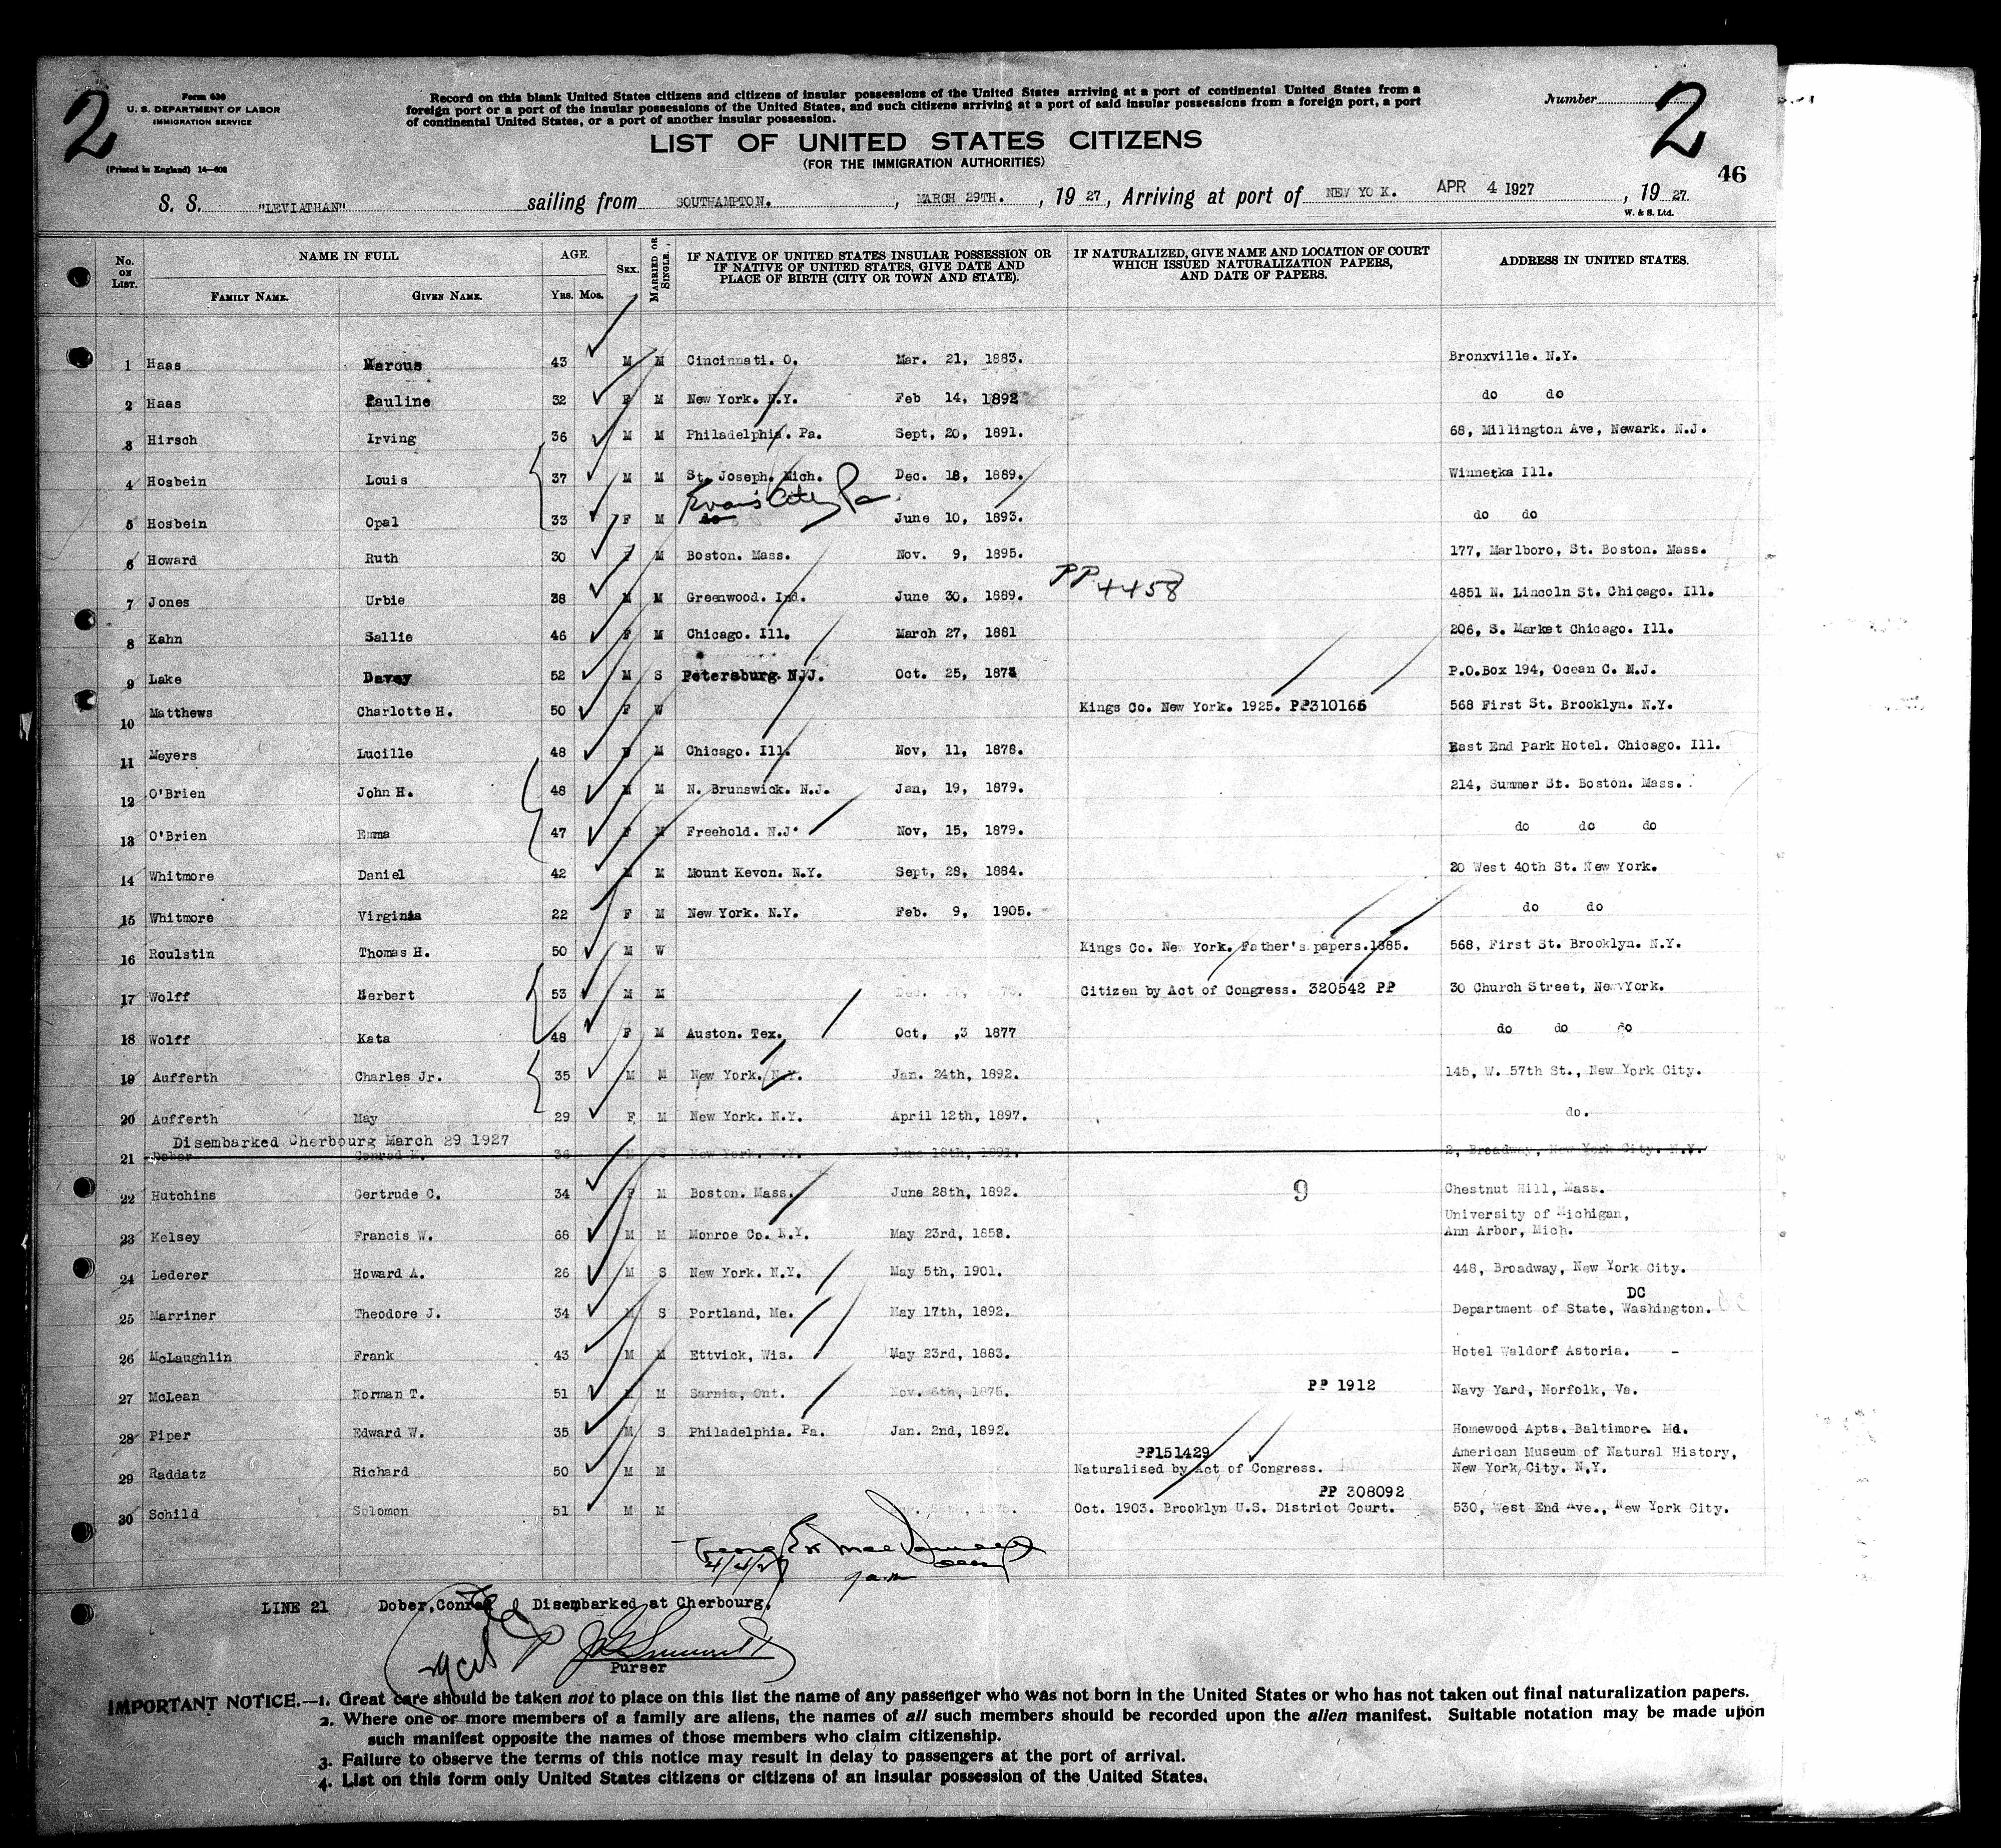 2
Form 630
U. S. DEPARTMENT OF LABOR
IMMIGRATION SERVICE
(Printed in England) 14—608
Record on this blank United States citizens and citizens of insular possessions of the United States arriving at a port of continental United States from a
foreign port or a port of the insular possessions of the United States, and such citizens arriving at a port of said insular possessions from a foreign port, a port
of continental United States, or a port of another insular possession.
Number
2
46
LIST OF UNITED STATES CITIZENS
(FOR THE IMMIGRATION AUTHORITIES)
S. S. "LEVIATHAN" sailing from SOUTHAMPTON. , MARCH 29TH. , 19 27, Arriving at port of NEW YO K. APR 4 1927 , 19 27.
W. & S. Ltd.
No. ON LIST. NAME IN FULL FAMILY NAME. GIVEN NAME. AGE. YRS. MOS. SEX. MARRIED OR SINGLE. IF NATIVE OF UNITED STATES INSULAR POSSESSION OR IF NATIVE OF UNITED STATES, GIVE DATE AND PLACE OF BIRTH (CITY OR TOWN AND STATE). IF NATURALIZED, GIVE NAME AND LOCATION OF COURT WHICH ISSUED NATURALIZATION PAPERS, AND DATE OF PAPERS. ADDRESS IN UNITED STATES.
1 Haas Marcus 43 M M Cincinnati. O. Mar. 21, 1883. Bronxville. N.Y.
2 Haas Pauline 32 F M New York. N.Y. Feb 14, 1892 do do
3 Hirsch Irving 36 M M Philadelphia. Pa. Sept, 20, 1891. 68, Millington Ave, Newark. N.J.
4 Hosbein Louis 37 M M St. Joseph. Mich. Dec. 18, 1889. Winnetka Ill.
Evans City Pa
5 Hosbein Opal 33 F M do June 10, 1893. do do
6 Howard Ruth 30 F M Boston. Mass. Nov. 9, 1895. 177, Marlboro, St. Boston. Mass.
PP 4458
7 Jones Urbie 38 M M Greenwood. Ind. June 30, 1889. 4851 N. Lincoln St. Chicago. Ill.
8 Kahn Sallie 46 F M Chicago. Ill. March 27, 1881 206, S. Market Chicago. Ill.
9 Lake Davey 52 M S Petersburg. N.J. Oct. 25, 1874 P.O.Box 194, Ocean C. N.J.
10 Matthews Charlotte H. 50 F W Kings Co. New York. 1925. PP310166 568 First St. Brooklyn. N.Y.
11 Meyers Lucille 48 F M Chicago. Ill. Nov, 11, 1878. East End Park Hotel. Chicago. Ill.
12 O'Brien John H. 48 M M N. Brunswick. N.J. Jan, 19, 1879. 214, Summer St. Boston. Mass.
13 O'Brien Emma 47 F M Freehold. N.J. Nov, 15, 1879. do do do
14 Whitmore Daniel 42 M M Mount Kevon. N.Y. Sept, 28, 1884. 20 West 40th St. New York.
15 Whitmore Virginia 22 F M New York. N.Y. Feb. 9, 1905. do do
16 Roulstin Thomas H. 50 M W Kings Co. New York. Father's papers.1885. 568, First St. Brooklyn. N.Y.
17 Wolff Herbert 53 M M Citizen by Act of Congress. 320542 PP 30 Church Street, New York.
18 Wolff Kata 48 F M Auston. Tex. Oct, ,3 1877 do do do
19 Aufferth Charles Jr. 35 M M New York. N.Y. Jan. 24th, 1892. 145, W. 57th St., New York City.
20 Aufferth May 29 F M New York. N.Y. April 12th, 1897. do.
Disembarked Cherbourg March 29 1927
21 Dober Conrad K. 36 M S New York. N.Y. June 18th, 1891. 2, Broadway, New York City. N.Y.
22 Hutchins Gertrude C. 34 F M Boston. Mass. June 28th, 1892. 9 Chestnut Hill, Mass.
23 Kelsey Francis W. 68 M M Monroe Co. N.Y. May 23rd, 1858. University of Michigan, Ann Arbor, Mich.
24 Lederer Howard A. 26 M S New York. N.Y. May 5th, 1901. 448, Broadway, New York City.
25 Marriner Theodore J. 34 M S Portland, Me. May 17th, 1892. Department of State, Washington. DC
26 McLaughlin Frank 43 M M Ettvick, Wis. May 23rd, 1883. Hotel Waldorf Astoria. -
27 McLean Norman T. 51 M M Sarnia, Ont. Nov. 6th, 1875. PP 1912 Navy Yard, Norfolk, Va.
28 Piper Edward W. 35 M S Philadelphia. Pa. Jan. 2nd, 1892. Homewood Apts. Baltimore. Md.
29 Raddatz Richard 50 M M PP151429 Naturalised by Act of Congress. American Museum of Natural History, New York City. N.Y.
30 Schild Solomon 51 M M PP 308092 Oct. 1903. Brooklyn U.S. District Court. 530, West End Ave., New York City.
4/4/27
LINE 21 Dober,Conrad Disembarked at Cherbourg.
Purser
IMPORTANT NOTICE.—1. Great care should be taken not to place on this list the name of any passenger who was not born in the United States or who has not taken out final naturalization papers.
2. Where one or more members of a family are aliens, the names of all such members should be recorded upon the alien manifest. Suitable notation may be made upon
such manifest opposite the names of those members who claim citizenship.
3. Failure to observe the terms of this notice may result in delay to passengers at the port of arrival.
4. List on this form only United States citizens or citizens of an insular possession of the United States.